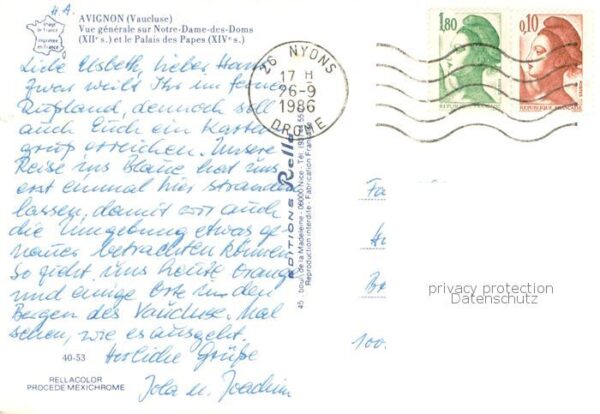 H.A.
AVIGNON (Vaucluse)
Vue générale sur Notre-Dame-des-Doms
(XIIe s.) et le Palais des Papes (XIVe s.)
Liebe Elsbeth, lieber Hans
Zwar weilt Ihr im fernen
Rußland, dennoch soll
auch Euch ein Karten-
gruß erreichen. Unsere
Reise ins Blaue hat uns
erst einmal hier stranden
lassen, damit wir auch
die Umgebung etwas ge-
nauer betrachten können
So zieht uns heute Orange
und einige Orte in den
Bergen des Vaucluse. Mal
sehen, wie es ausgeht.
Herzliche Grüße
Jola u. Joachim
40-53
RELLACOLOR
PROCEDE MEXICHROME
EDITIONS Rella
45 boul. de la Madeleine - 06000 Nice - Tél.
Reproduction interdite - Fabrication Française
26 NYONS
17 H
26-9
1986
DROME
1,80
REPUBLIQUE FRANÇAISE
0,10
REPUBLIQUE FRANÇAISE
POSTES
privacy protection
Datenschutz
100